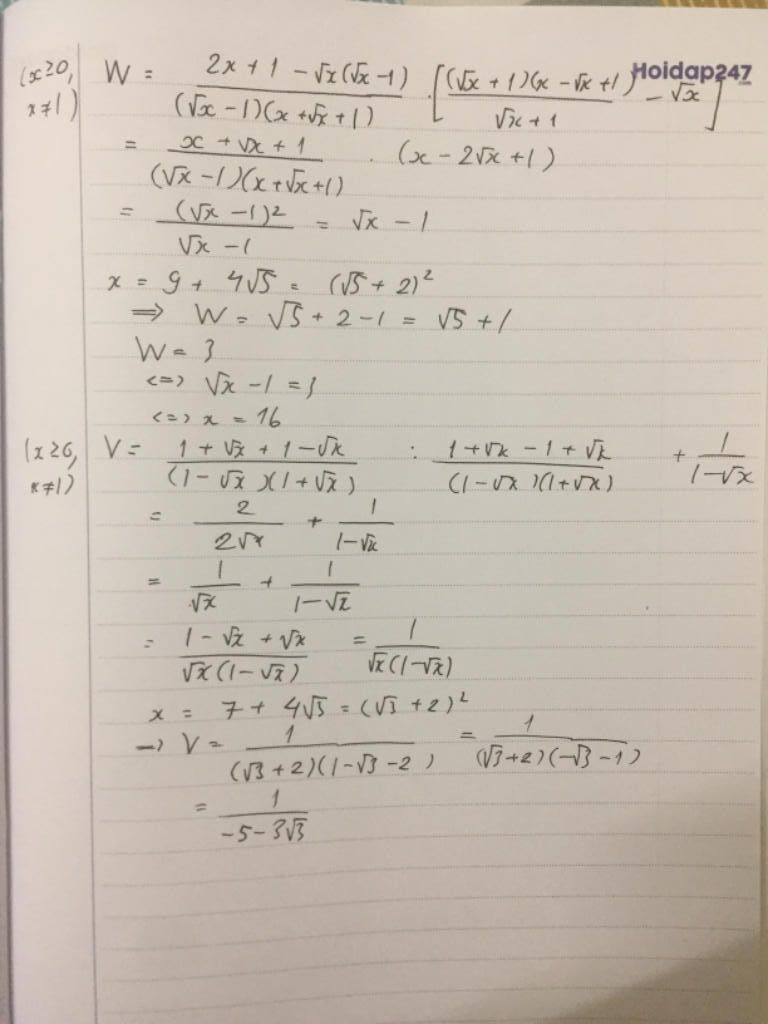 Hoidap247
(x≥0, x≠1) W = \frac{2x + 1 - √x(√x - 1)}{(√x - 1)(x + √x + 1)} · [\frac{(√x + 1)(x - √x + 1)}{√x + 1} - √x]
= \frac{x + √x + 1}{(√x - 1)(x + √x + 1)} · (x - 2√x + 1)
= \frac{(√x - 1)²}{√x - 1} = √x - 1
x = 9 + 4√5 = (√5 + 2)²
=> W = √5 + 2 - 1 = √5 + 1
W = 3
<=> √x - 1 = 3
<=> x = 16
(x≥0, x≠1) V = \frac{1 + √x + 1 - √x}{(1 - √x)(1 + √x)} : \frac{1 + √x - 1 + √x}{(1 - √x)(1 + √x)} + \frac{1}{1 - √x}
= \frac{2}{2√x} + \frac{1}{1 - √x}
= \frac{1}{√x} + \frac{1}{1 - √x}
= \frac{1 - √x + √x}{√x(1 - √x)} = \frac{1}{√x(1 - √x)}
x = 7 + 4√3 = (√3 + 2)²
=> V = \frac{1}{(√3 + 2)(1 - √3 - 2)} = \frac{1}{(√3 + 2)(-√3 - 1)}
= \frac{1}{-5 - 3√3}